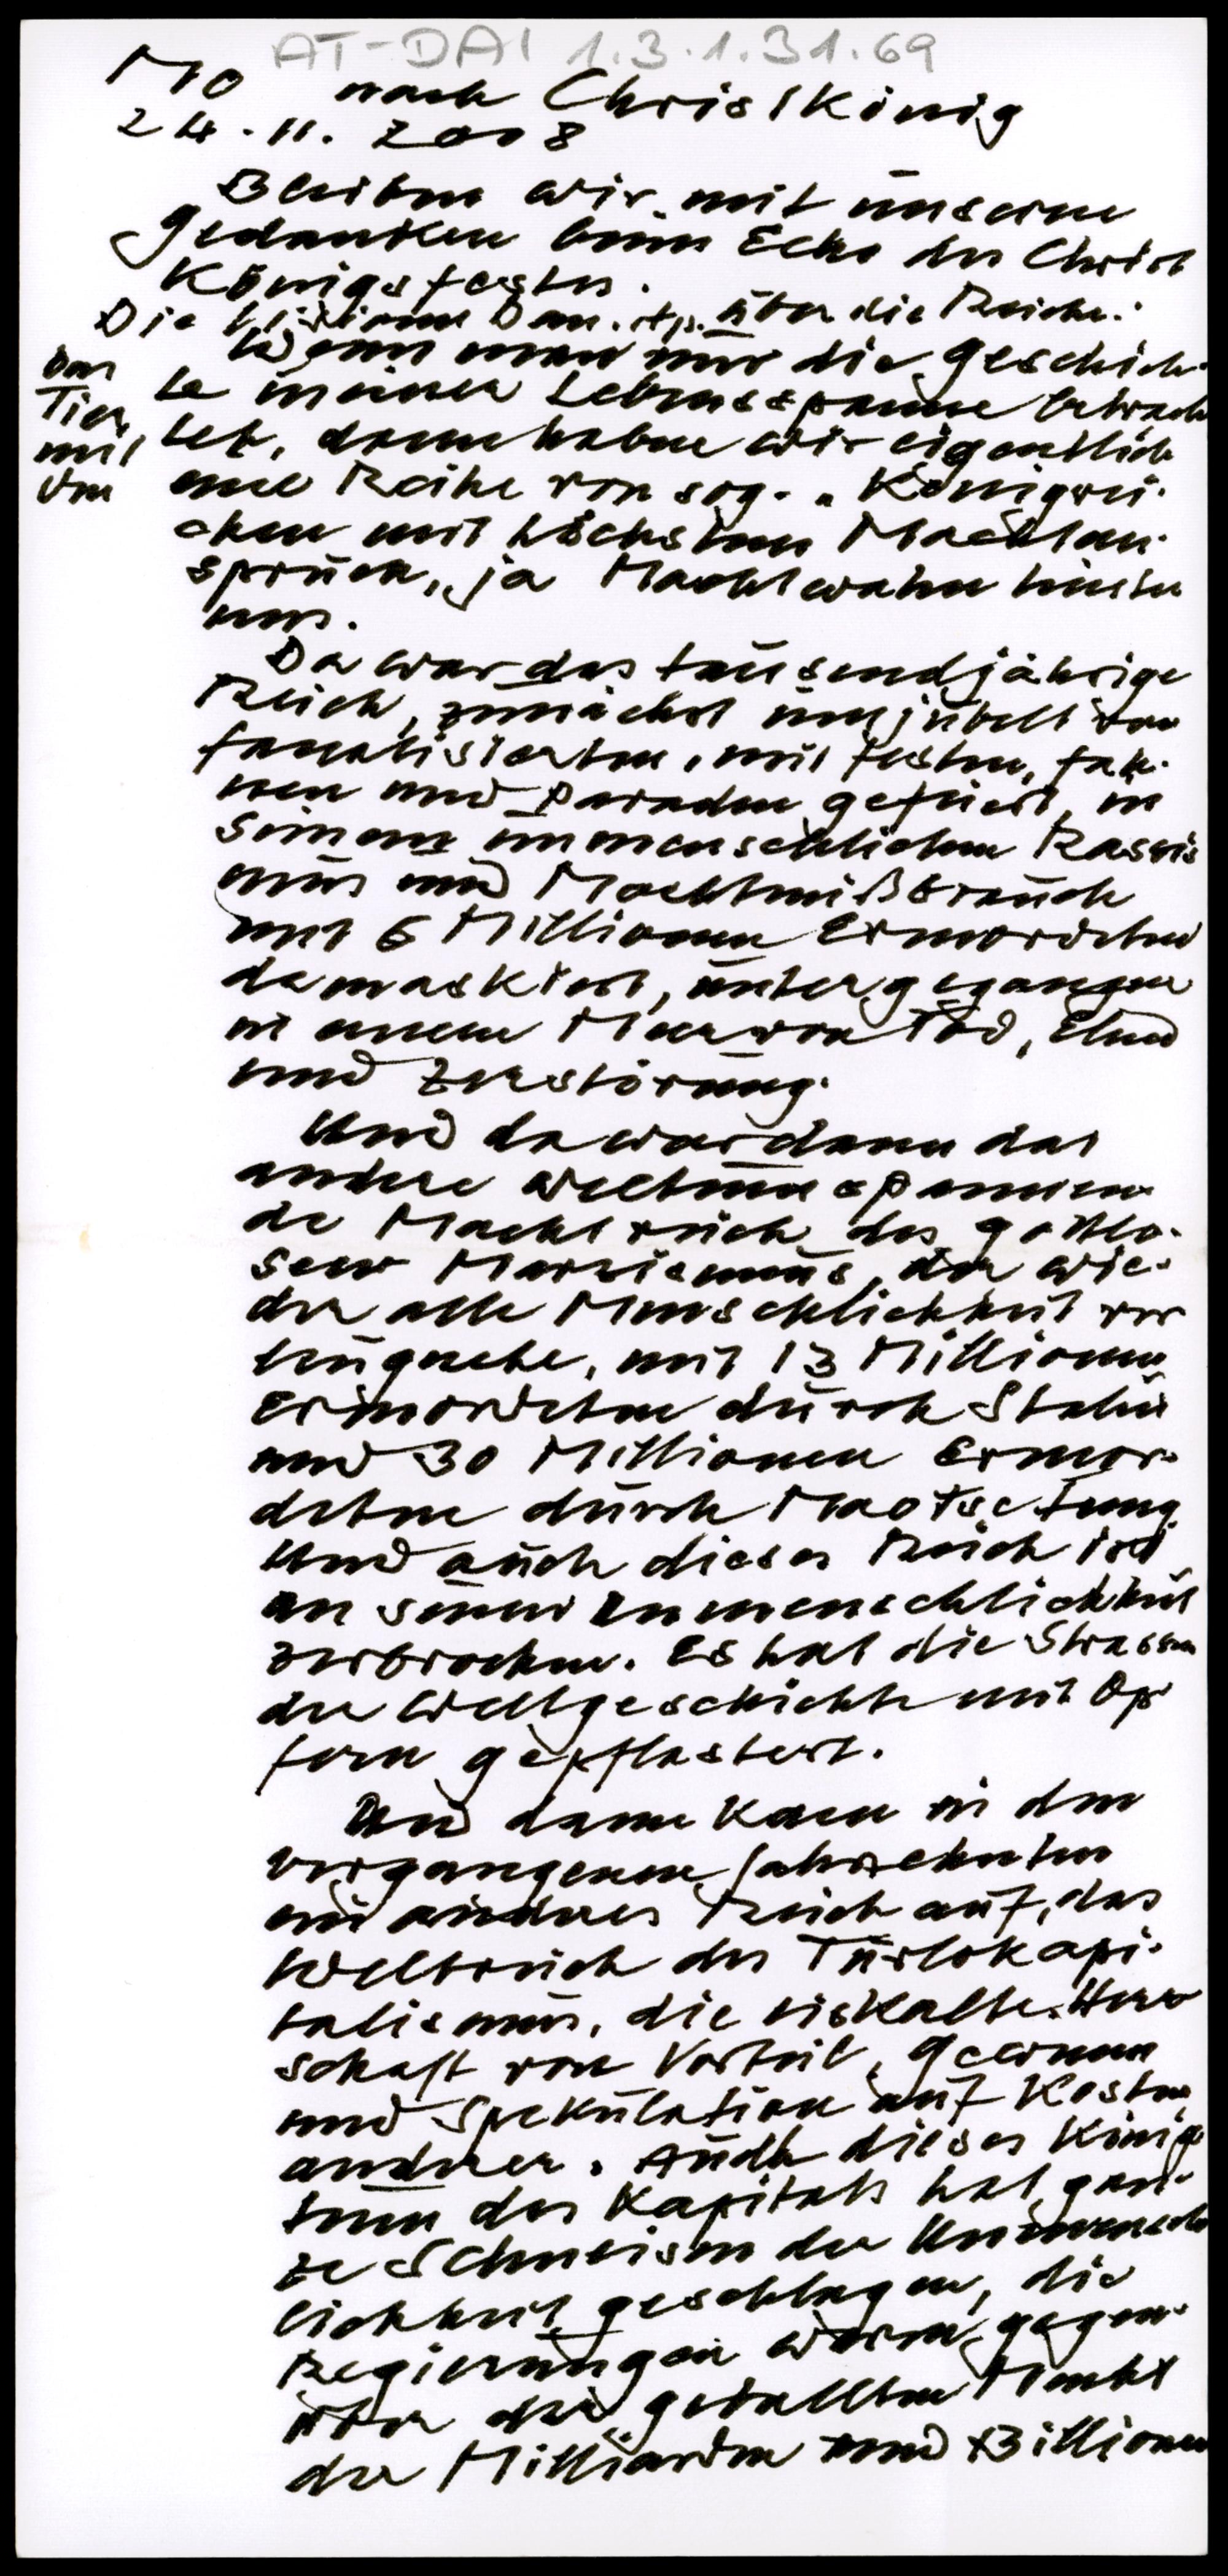 AT-DAI 1.3.1.31.69
Mo nach Christkönig
24.11.2008
Bleiben wir mit unseren
Gedanken beim Echo des Christ
Königsfestes.
Die Visionen Dan. über die Reiche:
Wenn man nur die Geschich-
te meiner Lebensspanne betrach
tet, dann haben wir eigentlich
eine Reihe von sog. "Königrei-
chen mit höchsten Machtan-
sprüchen, ja Machtwahn hinter
uns.
Das
Tier
mit
den
Da war das tausendjährige
Reich, zunächst umjubelt von
fanatisierten, mit Festen, Fah-
nen und Paraden gefeiert, in
seinem unmenschlichen Rassis
mus und Machtmißbrauch
mit 6 Millionen Ermordeten
demaskiert, untergegangen
in einem Meer von Tod, Elend
und Zerstörung.
Und da war dann das
andere weltumspannen-
de Machtreich des gottlo-
sen Marxismus, der wie-
der alle Menschlichkeit ver
leugnete, mit 13 Millionen
Ermordeten durch Stalin
und 30 Millionen Ermor-
deten durch Maotsetung
Und auch dieses Reich ist
an seiner Unmenschlichkeit
zerbrochen. Es hat die Strassen
der Weltgeschichte mit Op
fern gepflastert.
Und dann kam in den
vergangenen Jahrzehnten
ein anderes Reich auf, das
Weltreich des Turbokapi-
talismus, die eiskalte Herr
schaft von Vorteil, Gewinn
und Spekulation auf Kosten
anderer. Auch dieses König
tum des Kapitals hat gan-
ze Schneisen der Unmensch
lichkeit geschlagen, die
Regierungen waren gegen-
über der geballten Macht
der Milliarden und Billionen